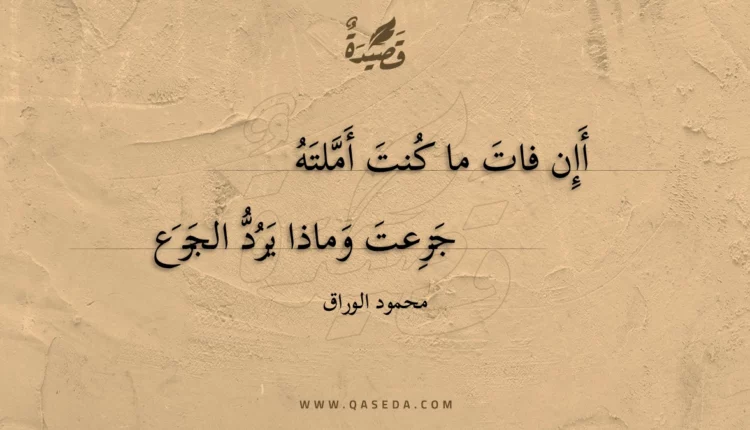 قَصِيدَةٌ
أَإِن فاتَ ما كُنتَ أَمَّلتَهُ
جَزِعتَ وَماذا يَرُدُّ الجَزَع
محمود الوراق
WWW.QASEDA.COM